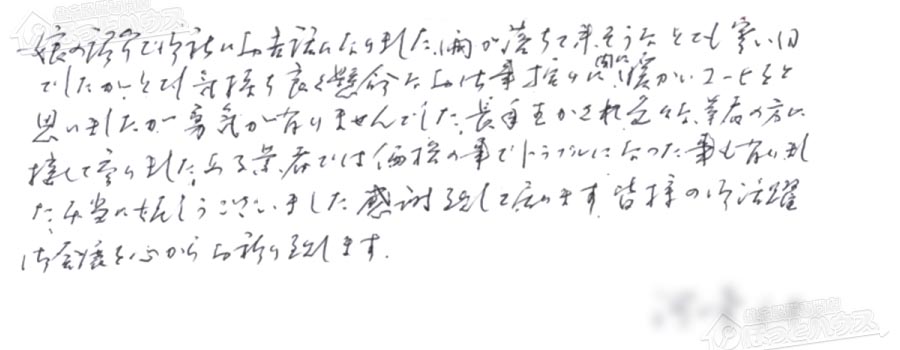 娘の紹介で御社にお世話になりました。雨が落ちて来そうな とても寒い日
でしたが、とても気持ち良く懸命なお仕事振り 間に暖かいコーヒーをと
思いましたが勇気が有りませんでした。長年 色々な業者の方に
接して参りました。ある業者では価格の事でトラブルになった事も有りまし
た。本当に嬉しうございました。感謝致して居ります。皆様の御活躍
御発展を心からお祈り致します。